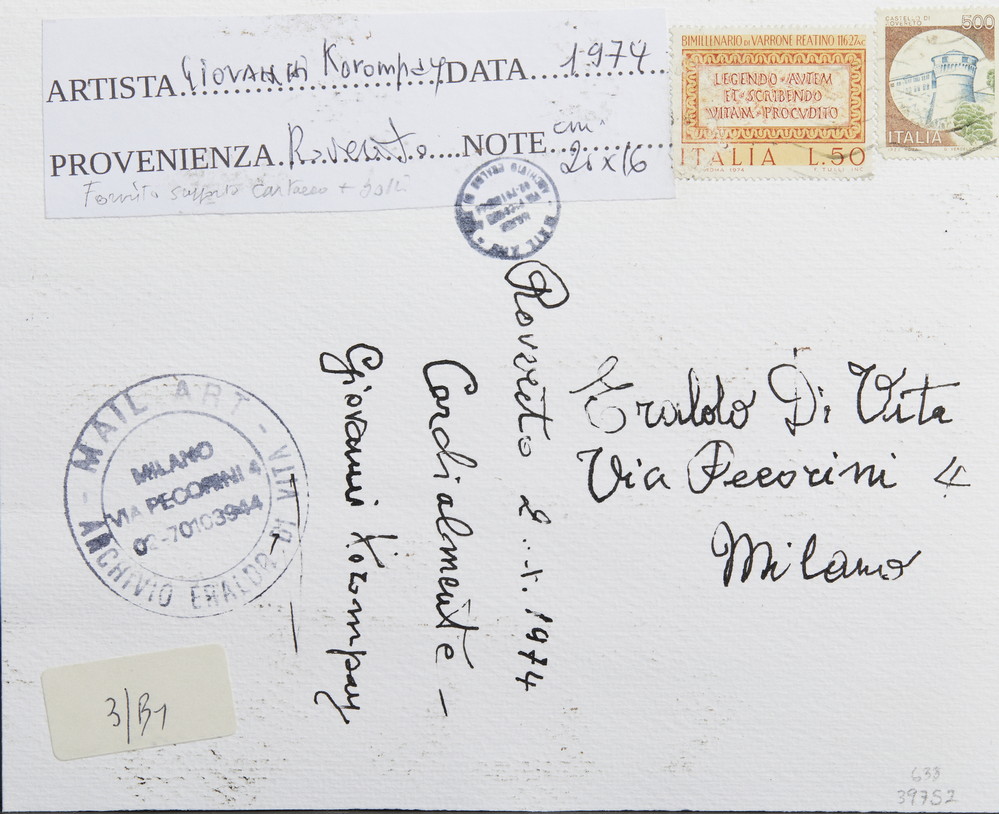 ARTISTA Giovanni Korompay DATA 1974
PROVENIENZA Rovereto NOTE cm
20x16
Fornito supporto cartaceo +
BIMILLENARIO DI VARRONE REATINO 116-27 a.C.
LEGENDO·AVTEM
ET·SCRIBENDO
VITAM·PROCVDITO
ITALIA L.50
ROMA 1974
CASTELLO DI
ROVERETO
500
ITALIA
Rovereto 2 . . 1974
Cordialmente –
Giovanni Korompay
Eraldo Di Vita
Via Pecorini 4
Milano
- MAIL ART -
ARCHIVIO ERALDO DI VITA
MILANO
VIA PECORINI 4
02-70103944
3/B1
633
39752